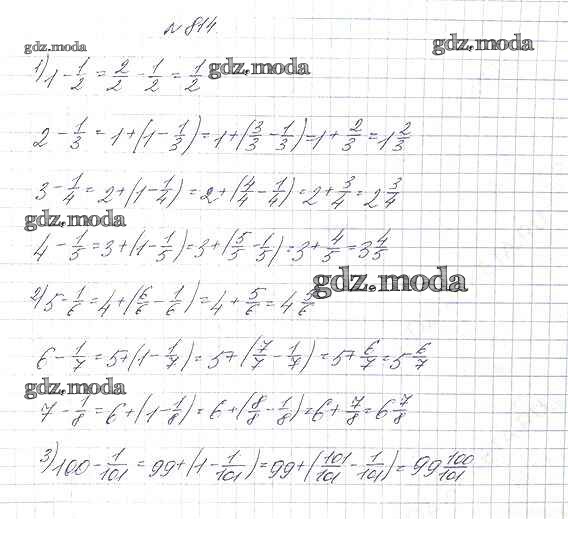 № 814
gdz.moda
gdz.moda
1) 1 - 1/2 = 2/2 - 1/2 = 1/2
gdz.moda
2 - 1/3 = 1+(1 - 1/3) = 1+(3/3 - 1/3) = 1+ 2/3 = 1 2/3
3 - 1/4 = 2+(1 - 1/4) = 2+(4/4 - 1/4) = 2+ 3/4 = 2 3/4
gdz.moda
4 - 1/5 = 3+(1 - 1/5) = 3+(5/5 - 1/5) = 3+ 4/5 = 3 4/5
gdz.moda
2) 5 - 1/6 = 4+(6/6 - 1/6) = 4+ 5/6 = 4 5/6
6 - 1/7 = 5+(1 - 1/7) = 5+(7/7 - 1/7) = 5+ 6/7 = 5 6/7
gdz.moda
7 - 1/8 = 6+(1 - 1/8) = 6+(8/8 - 1/8) = 6+ 7/8 = 6 7/8
3) 100 - 1/101 = 99+(1 - 1/101) = 99+(101/101 - 1/101) = 99 100/101